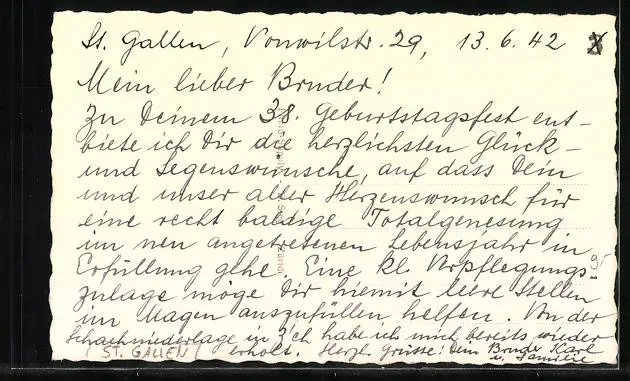 St. Gallen, Vonwilstr. 29, 13. 6. 42
Mein lieber Bruder!
Zu Deinem 38. Geburtstagsfest ent-
biete ich Dir die herzlichsten Glück-
und Segenswünsche, auf dass Dein
und unser aller Herzenswunsch für
eine recht baldige Totalgenesung
im neu angetretenen Lebensjahr in
Erfüllung gehe. Eine kl. Verpflegungs-
zulage möge Dir hiemit leere Stellen
im Magen auszufüllen helfen. Von der
Schachniederlage in Z'ch habe ich mich bereits wieder
erholt. Herzl. Grüsse: Dein Bruder Karl
u. Familie
(ST. GALLEN)